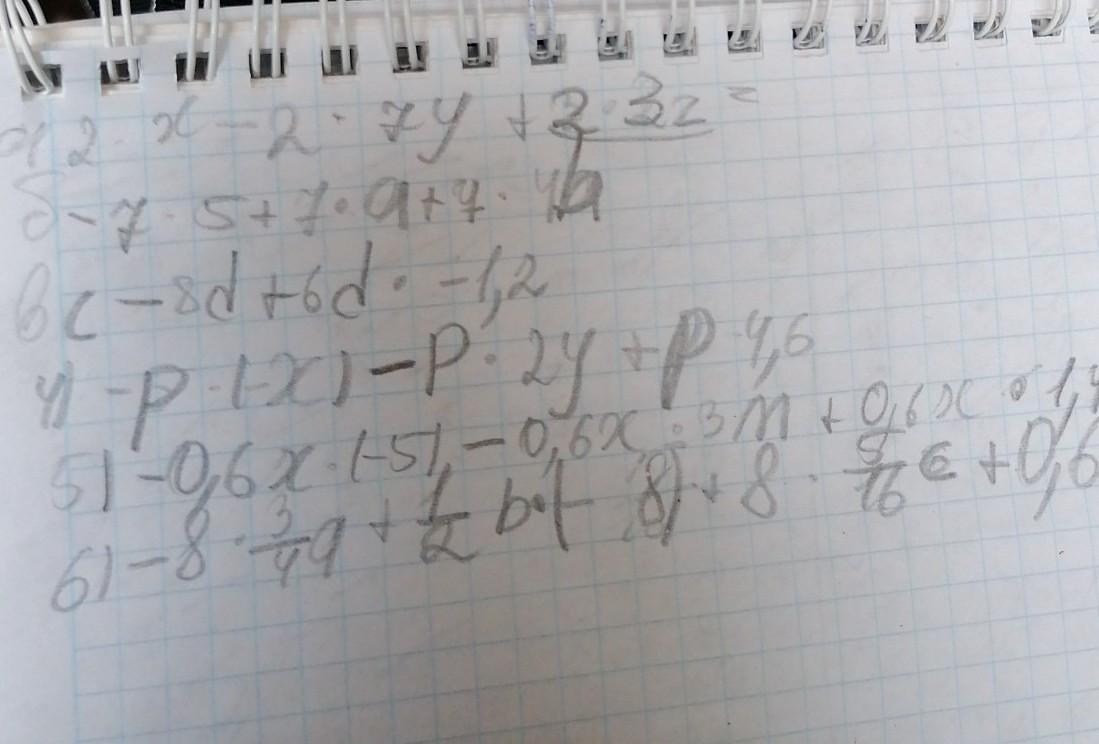 а) 2 · x - 2 · 7y + 2 · 3z =
б - 7 · 5 + 7 · a + 7 · 4b
в c - 8d + 6d · -1,2
4) -p · (-x) - p · 2y + p 4,6
5) -0,6x · (-5) - 0,6x · 3m + 0,6x · 1,4
6) -8 · 3/4 a + 1/2 b · (- 8) + 8 · 5/16 c + 0,6